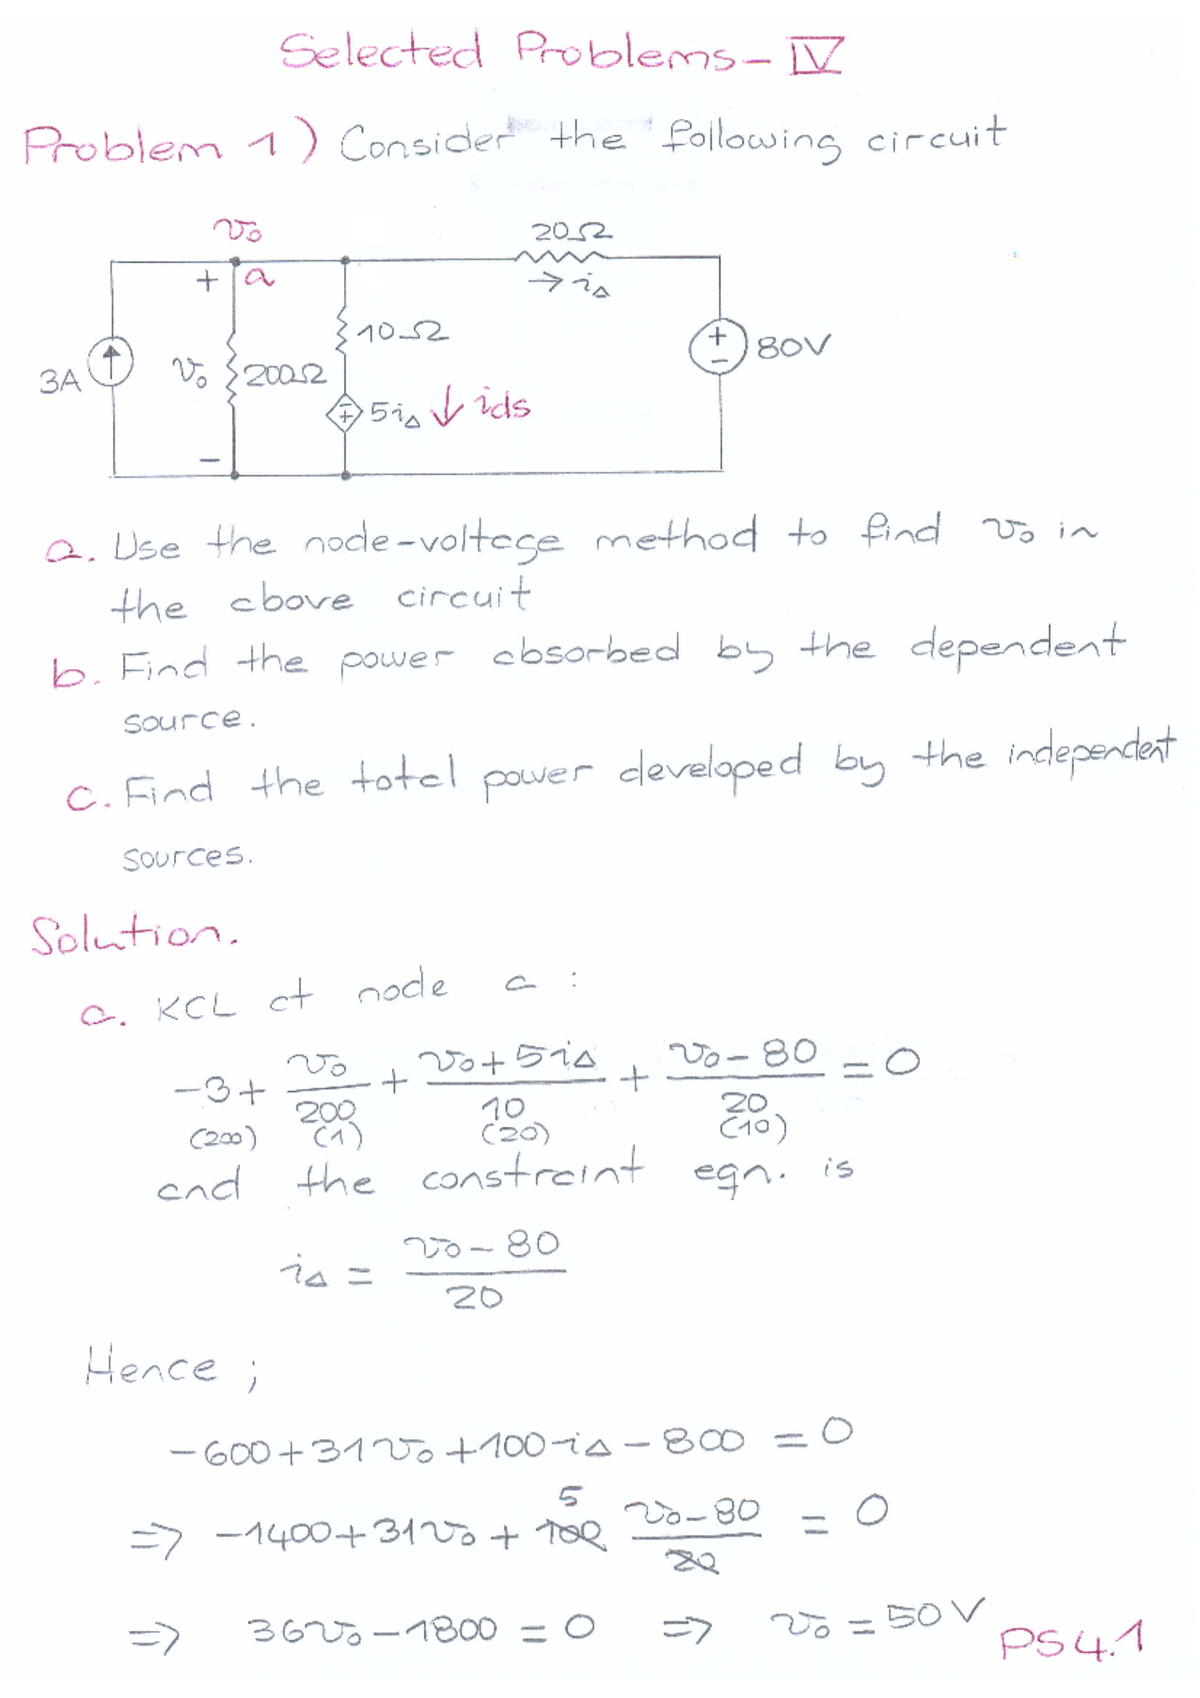 Selected Problems - IV
Problem 1) Consider the following circuit
v₀
20Ω
+ a
→ i△
10Ω
+
−
80V
3A
v₀
200Ω
− +
5i△ ↓ ids
−
a. Use the node-voltage method to find v₀ in
the above circuit
b. Find the power absorbed by the dependent
source.
c. Find the total power developed by the independent
sources.
Solution.
a. KCL at node a :
-3 + v₀/200 + (v₀+5i△)/10 + (v₀-80)/20 = 0
(200) (1) (20) (10)
and the constraint eqn. is
i△ = (v₀-80)/20
Hence ;
-600+31v₀+100i△-800 = 0
⇒ -1400+31v₀+ 5 100 (v₀-80)/20 = 0
⇒ 36v₀-1800 = 0 ⇒ v₀ = 50V
PS4.1